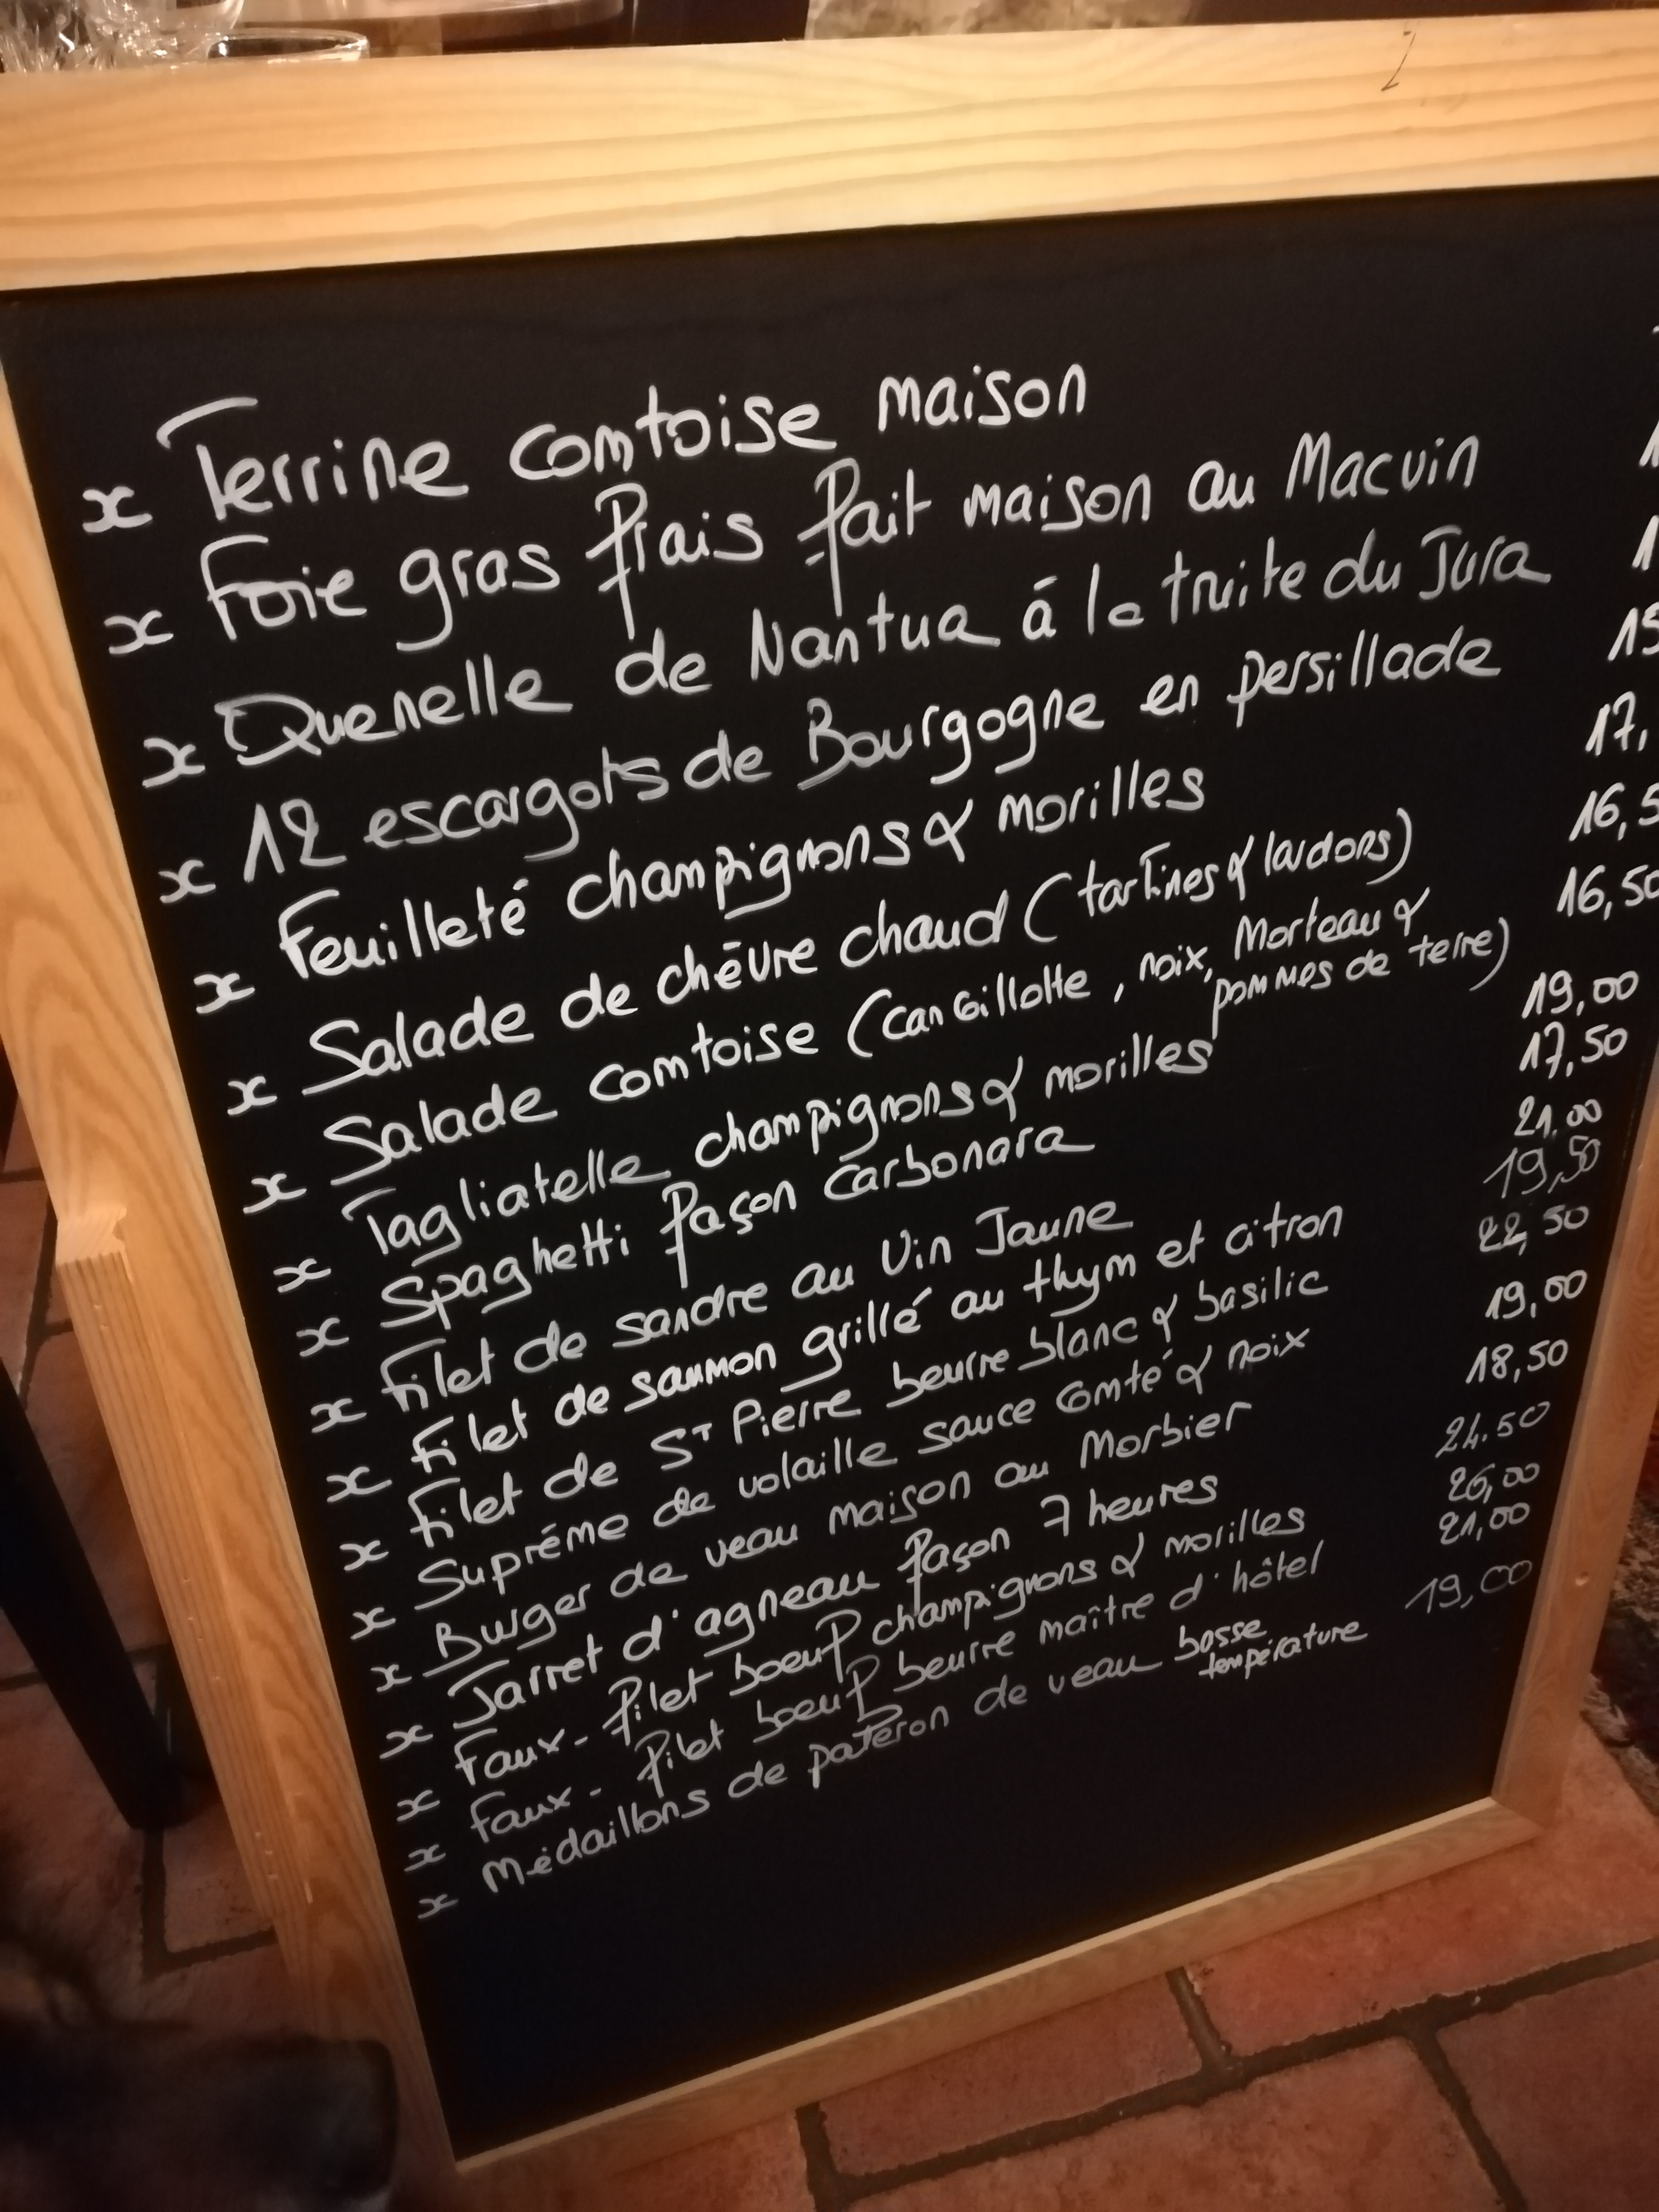 x Terrine comtoise maison
x Foie gras frais fait maison au Macvin 1
x Quenelle de Nantua à la truite du Jura 1
x 12 escargots de Bourgogne en persillade 15
x Feuilleté champignons & morilles 17,
x Salade de chèvre chaud (tartines & lardons) 16,5
x Salade comtoise (cancoillotte, noix, Morteau & 16,50
pommes de terre)
x Tagliatelle champignons & morilles 19,00
x Spaghetti façon Carbonara 17,50
x Filet de sandre au Vin Jaune 21.00
x Filet de saumon grillé au thym et citron 19,50
x Filet de St Pierre beurre blanc & basilic 22,50
x Suprême de volaille sauce Comté & noix 19,00
x Burger de veau maison au Morbier 18,50
x Jarret d'agneau façon 7 heures 24.50
x Faux-filet boeuf champignons & morilles 26,00
x Faux-filet boeuf beurre maître d'hôtel 21,00
x Médaillons de pateron de veau basse 19,00
température